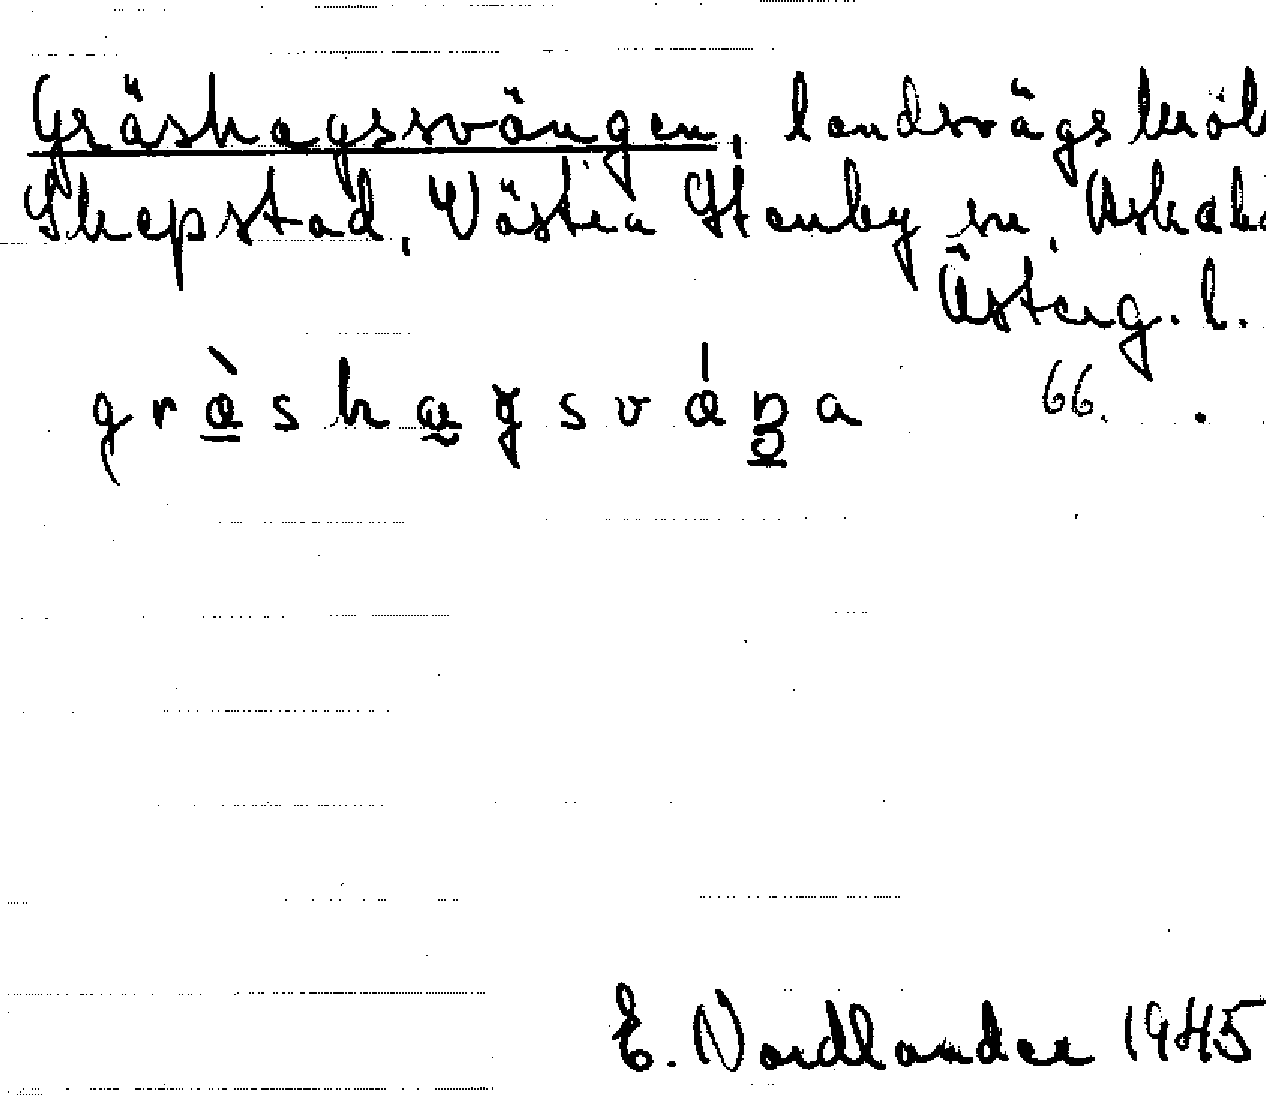 Gräshagssvängen, landsvägskrök
Skepstad, Västra Stenby sn, Askeb
Österg. l.
66.
E. Nordlander 1945